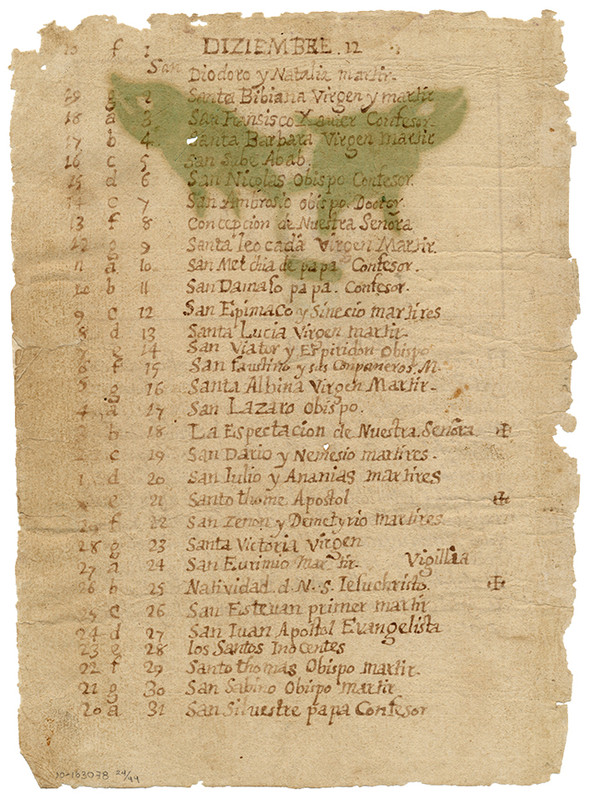 f 1 DIZIEMBRE. 12
San Diodoro y Natalia martir.
29 g 2 Santa Bibiana Virgen y martir
18 a 3 San Fransisco Xavier Confesor.
17 b 4 Santa Barbara Virgen Martir
16 c 5 San Sabe Abab.
15 d 6 San Nicolas Obispo Confesor.
14 c 7 San Ambrosio obispo. Doctor.
13 f 8 Concepcion de Nuestra Señora
12 g 9 Santa leocada Virgen Martir.
11 a 10 San Metchia de papa Confesor.
10 b 11 San Damaso papa. Confesor.
9 c 12 San Epimaco y Sinecio martires
8 d 13 Santa Lucia Virgen martir.
7 e 14 San Viator y Espiridon Obispo
6 f 15 San faustino y sus Companeros M.
5 g 16 Santa Albina Virgen Martir.
4 a 17 San Lazaro Obispo.
3 b 18 La Espectacion de Nuestra Señora ✠
c 19 San Dario y Nemesio martires.
1 d 20 San Iulio y Ananias martires
e 21 Santo thome Apostol ✠
29 f 22 San Zenon y Demetyrio martires.
28 g 23 Santa Victoria Virgen
27 a 24 San Eurimio martir. Vigillia
26 b 25 Natividad d N. S. Iesuchristo. ✠
25 c 26 San Estevan primer martir
24 d 27 San Iuan Apostol Evangelista
23 e 28 los Santos Inocentes
22 f 29 Santo thomas Obispo martir.
21 g 30 San Sabino Obispo martir
20 a 31 San Silvestre papa Confesor
10-163038 24/44